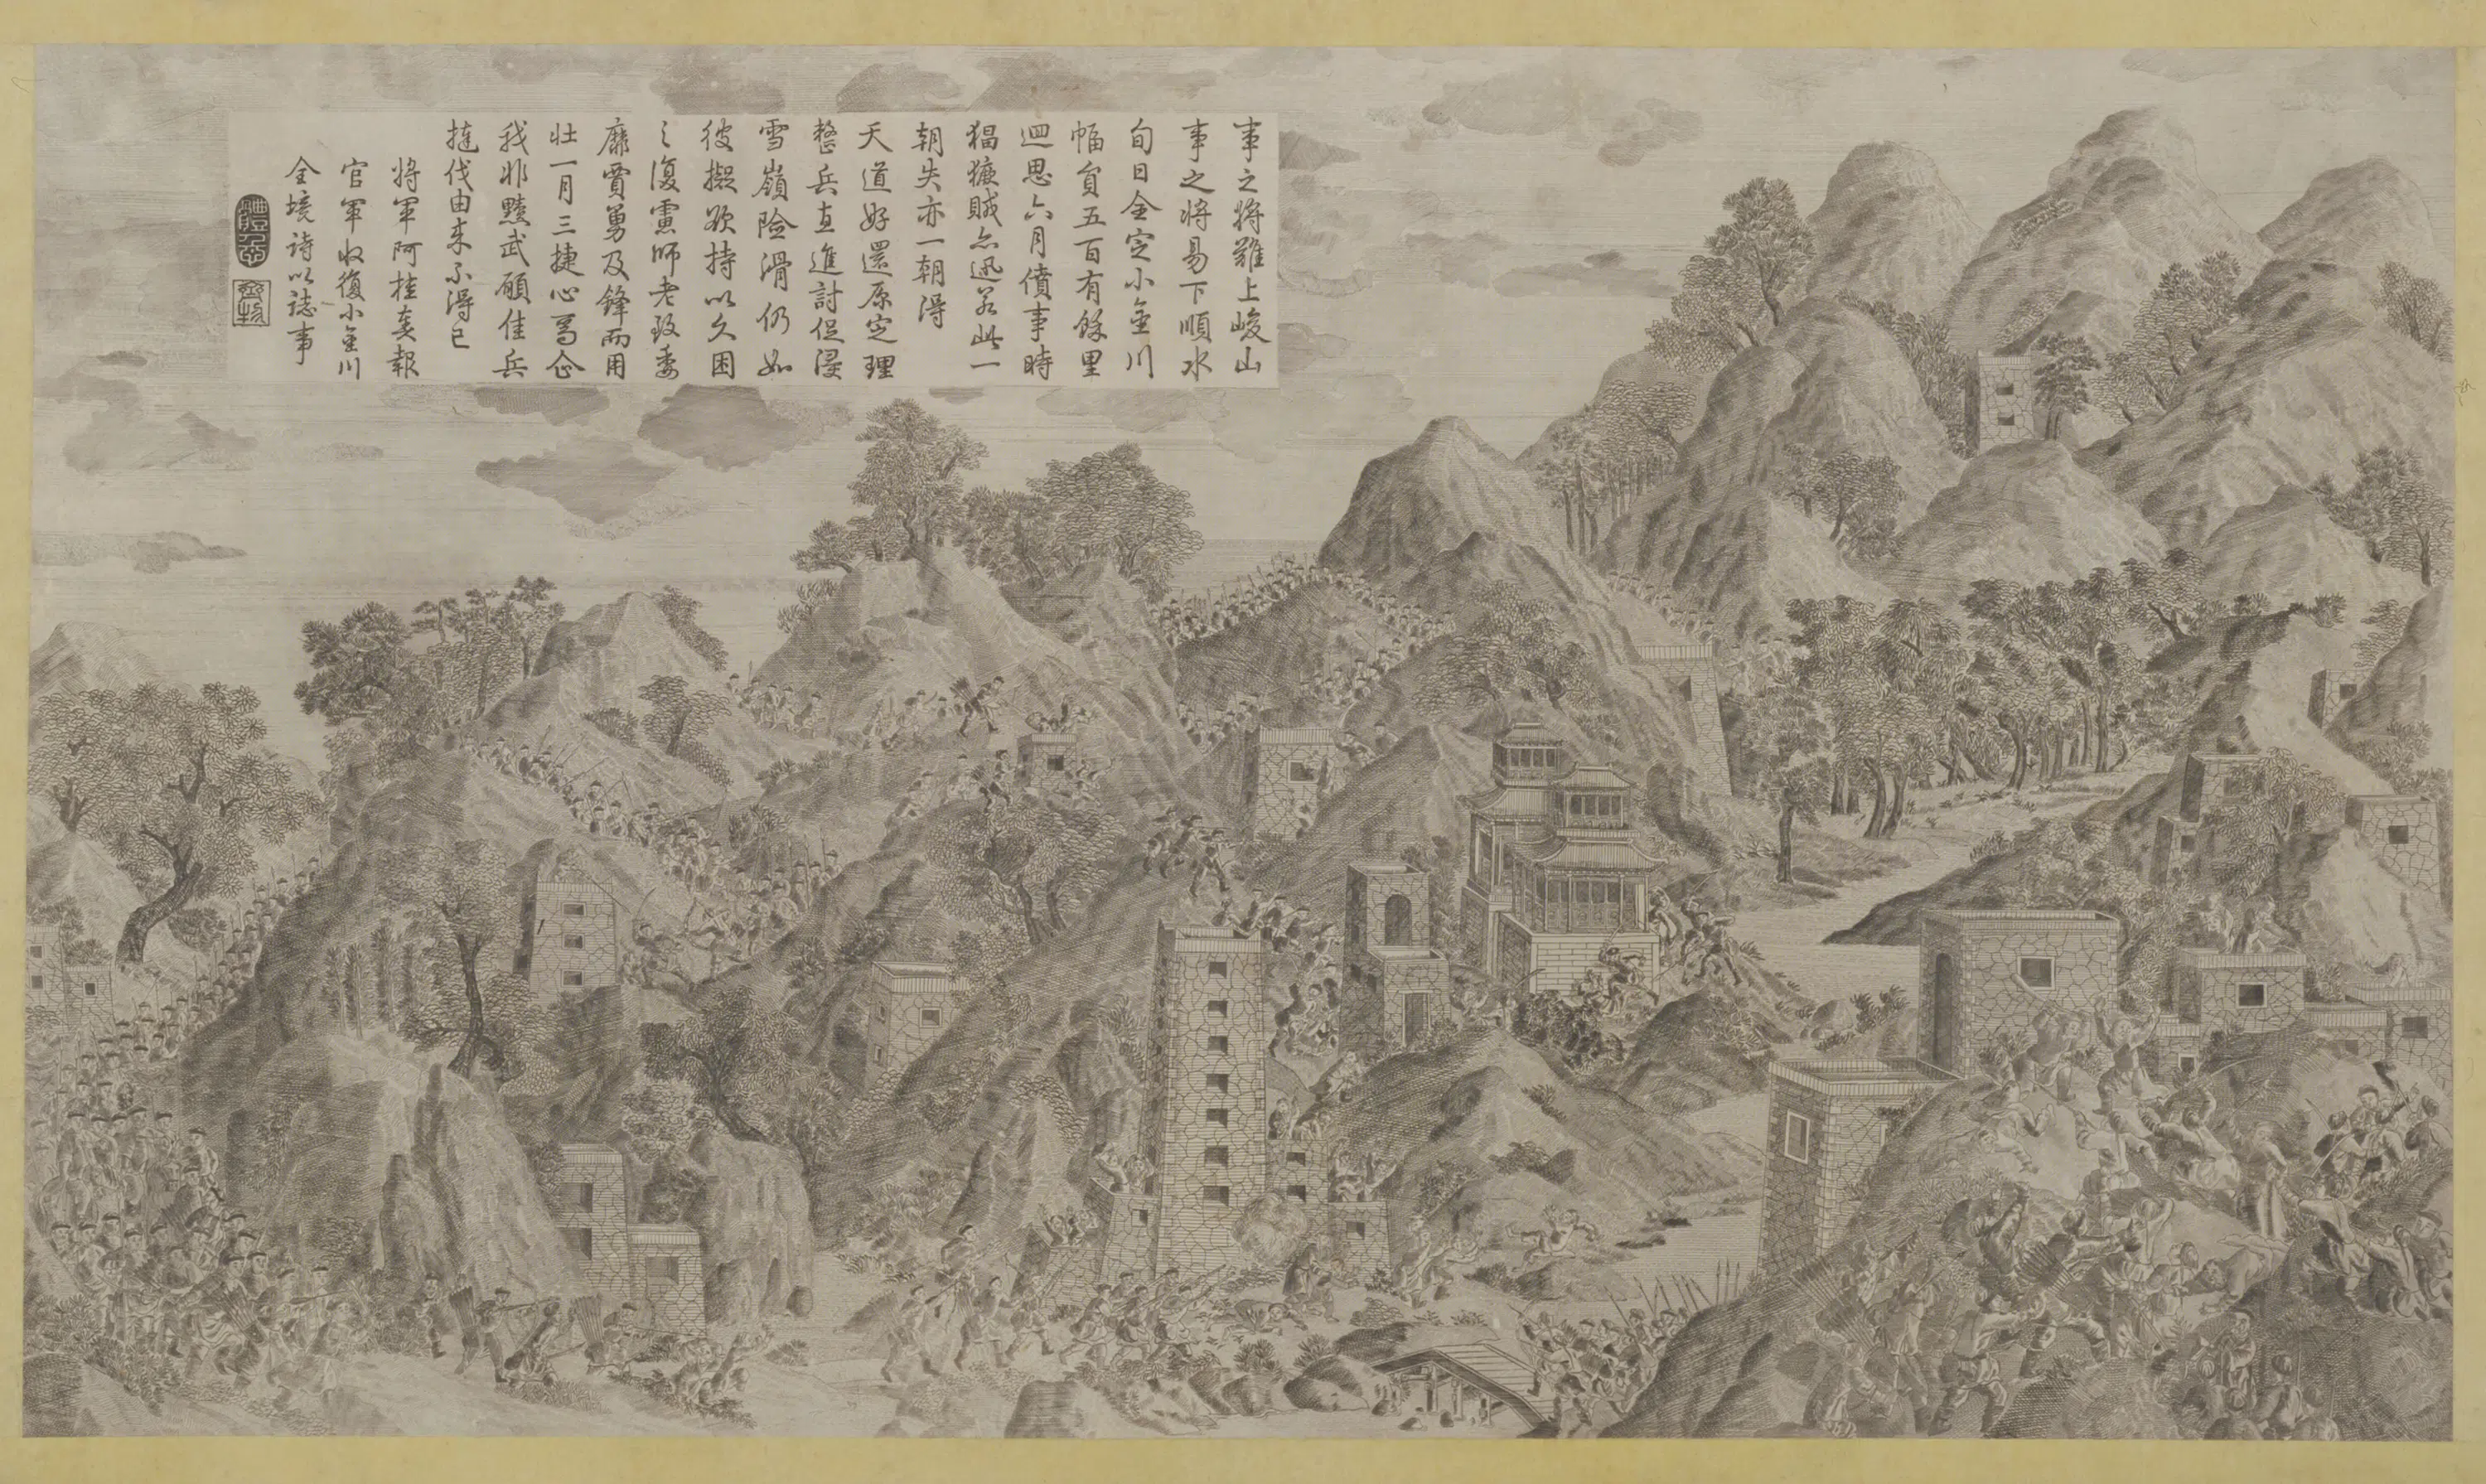 事之將難上峻山
事之將易下順水
旬日全定小金川
幅員五百有餘里
迴思六月僨事時
猖獗賊亦迅若此一
朝失亦一朝得
天道好還原定理
整兵直進討促浸
雪嶺險滑仍如
彼擬欲持以久困
之復慮師老致委
靡賈勇及鋒而用
壯一月三捷心焉企
我非黷武願佳兵
撻伐由來不得已
將軍阿桂奏報
官軍收復小金川
全境詩以誌事